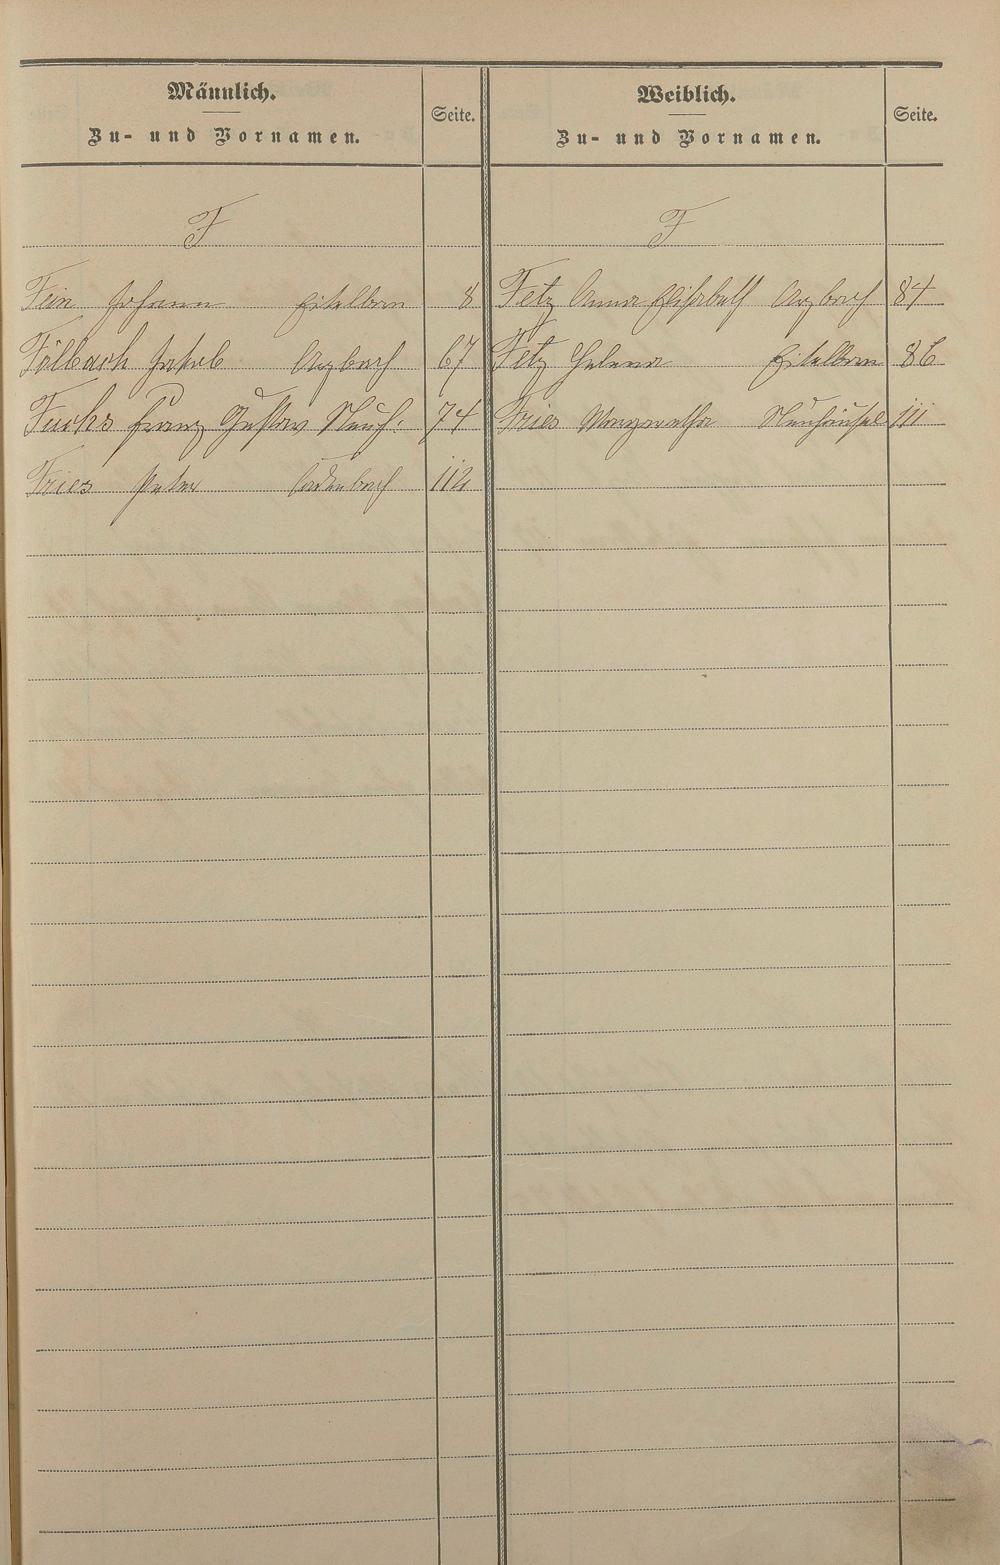 Männlich.
Zu- und Vornamen.
Seite.
Weiblich.
Zu- und Vornamen.
Seite.
F
F
Fein Johann Eitelborn 8
Fetz Anna Elisabeth Arzbach 84
Fölbach Jakob Arzbach 67
Fetz Helena Eitelborn 86
Fuchs Franz Gustav Neuh: 74
Fries Margaretha Neuhäusel 111
Fries Peter Cadenbach 112